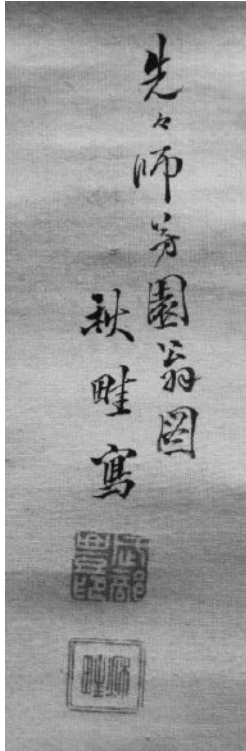 先々師芳園翁図
秋畦寫
秋畦